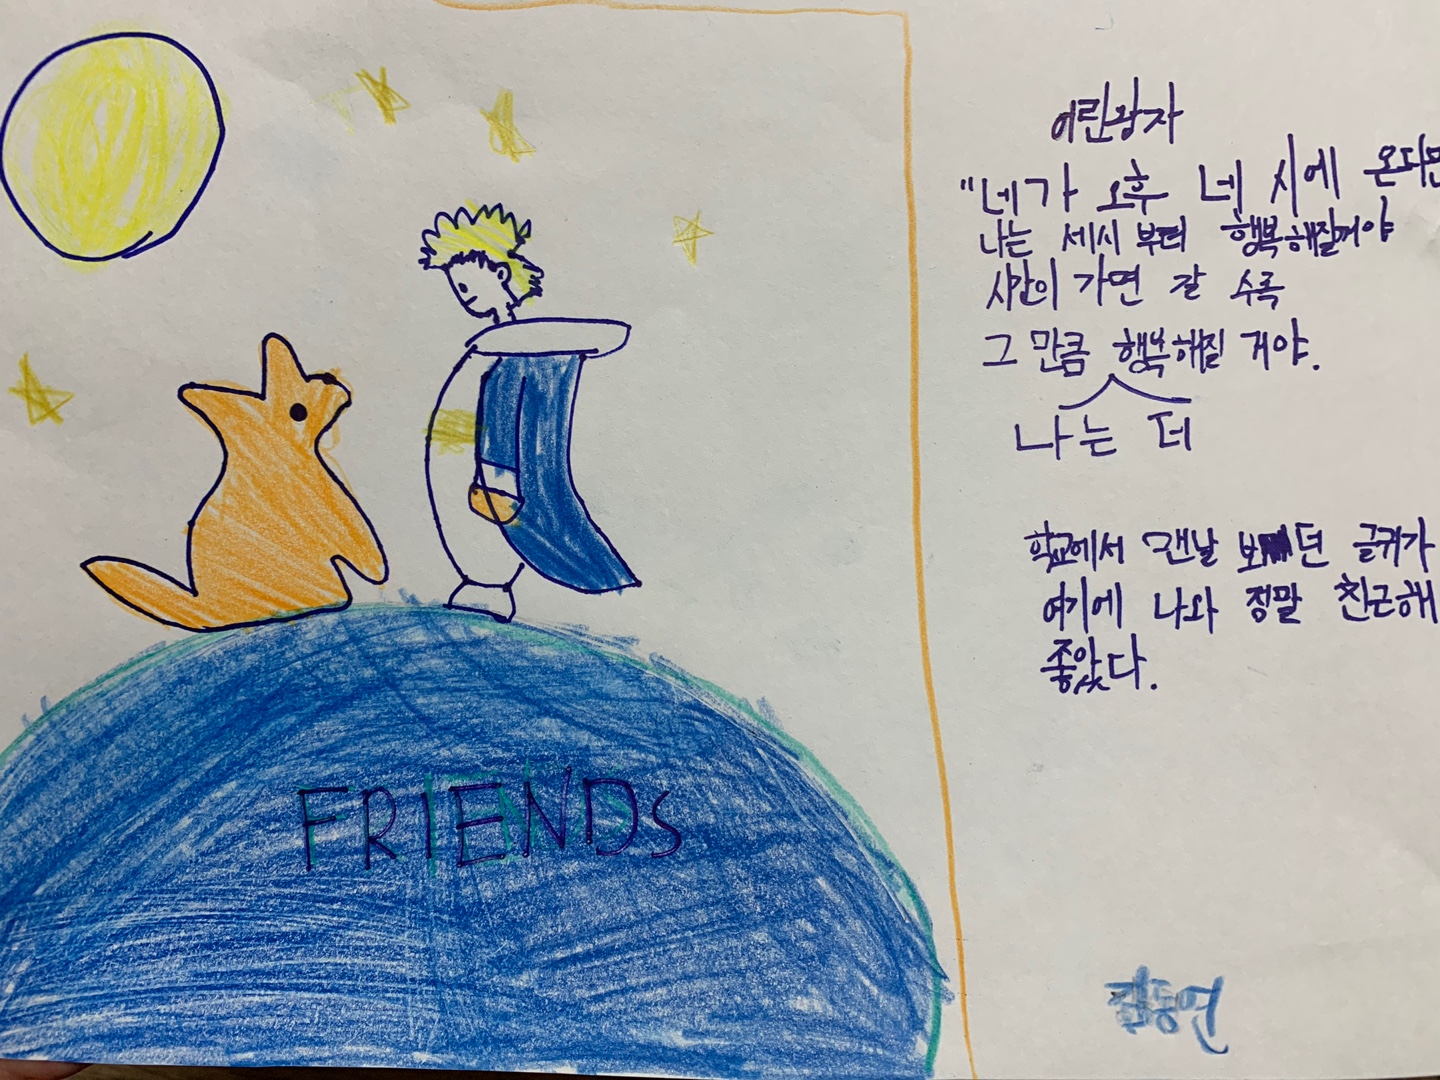 어린왕자
"네가 오후 네 시에 온다면
나는 세시 부터 행복해질꺼야
시간이 가면 갈 수록
그 만큼 행복해질 거야.
나는 더
학교에서 맨날 보던 글귀가
여기에 나와 정말 친근해
좋았다.
FRIENDS
김동연